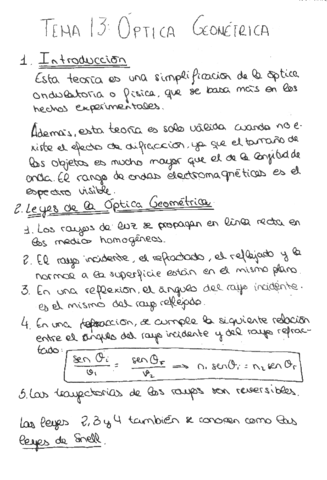 TEMA 13: ÓPTICA GEOMÉTRICA
1. Introducción
Esta teoría es una simplificación de la óptica
ondulatoria o física, que se basa más en los
hechos experimentales.
Además, esta teoría es solo válida cuando no e-
xiste el efecto de difracción, ya que el tamaño de
los objetos es mucho mayor que el de la longitud de
onda. El rango de ondas electromagnéticas es el
espectro visible.
2. Leyes de la Óptica Geométrica
1. Los rayos de luz se propagan en línea recta en
los medios homogéneos.
2. El rayo incidente, el refractado, el reflejado y la
normal a la superficie están en el mismo plano
3. En una reflexión, el ángulo del rayo incidente
es el mismo del rayo reflejado.
4. En una refracción, se cumple la siguiente relación
entre el ángulo del rayo incidente y del rayo refrac-
tado:
sen θi / v1 = sen θr / v2 ⟹ n1 senθi = n2 sen θr
5. Las trayectorias de los rayos son reversibles.
Las leyes 2, 3 y 4 también se conocen como las
leyes de Snell.